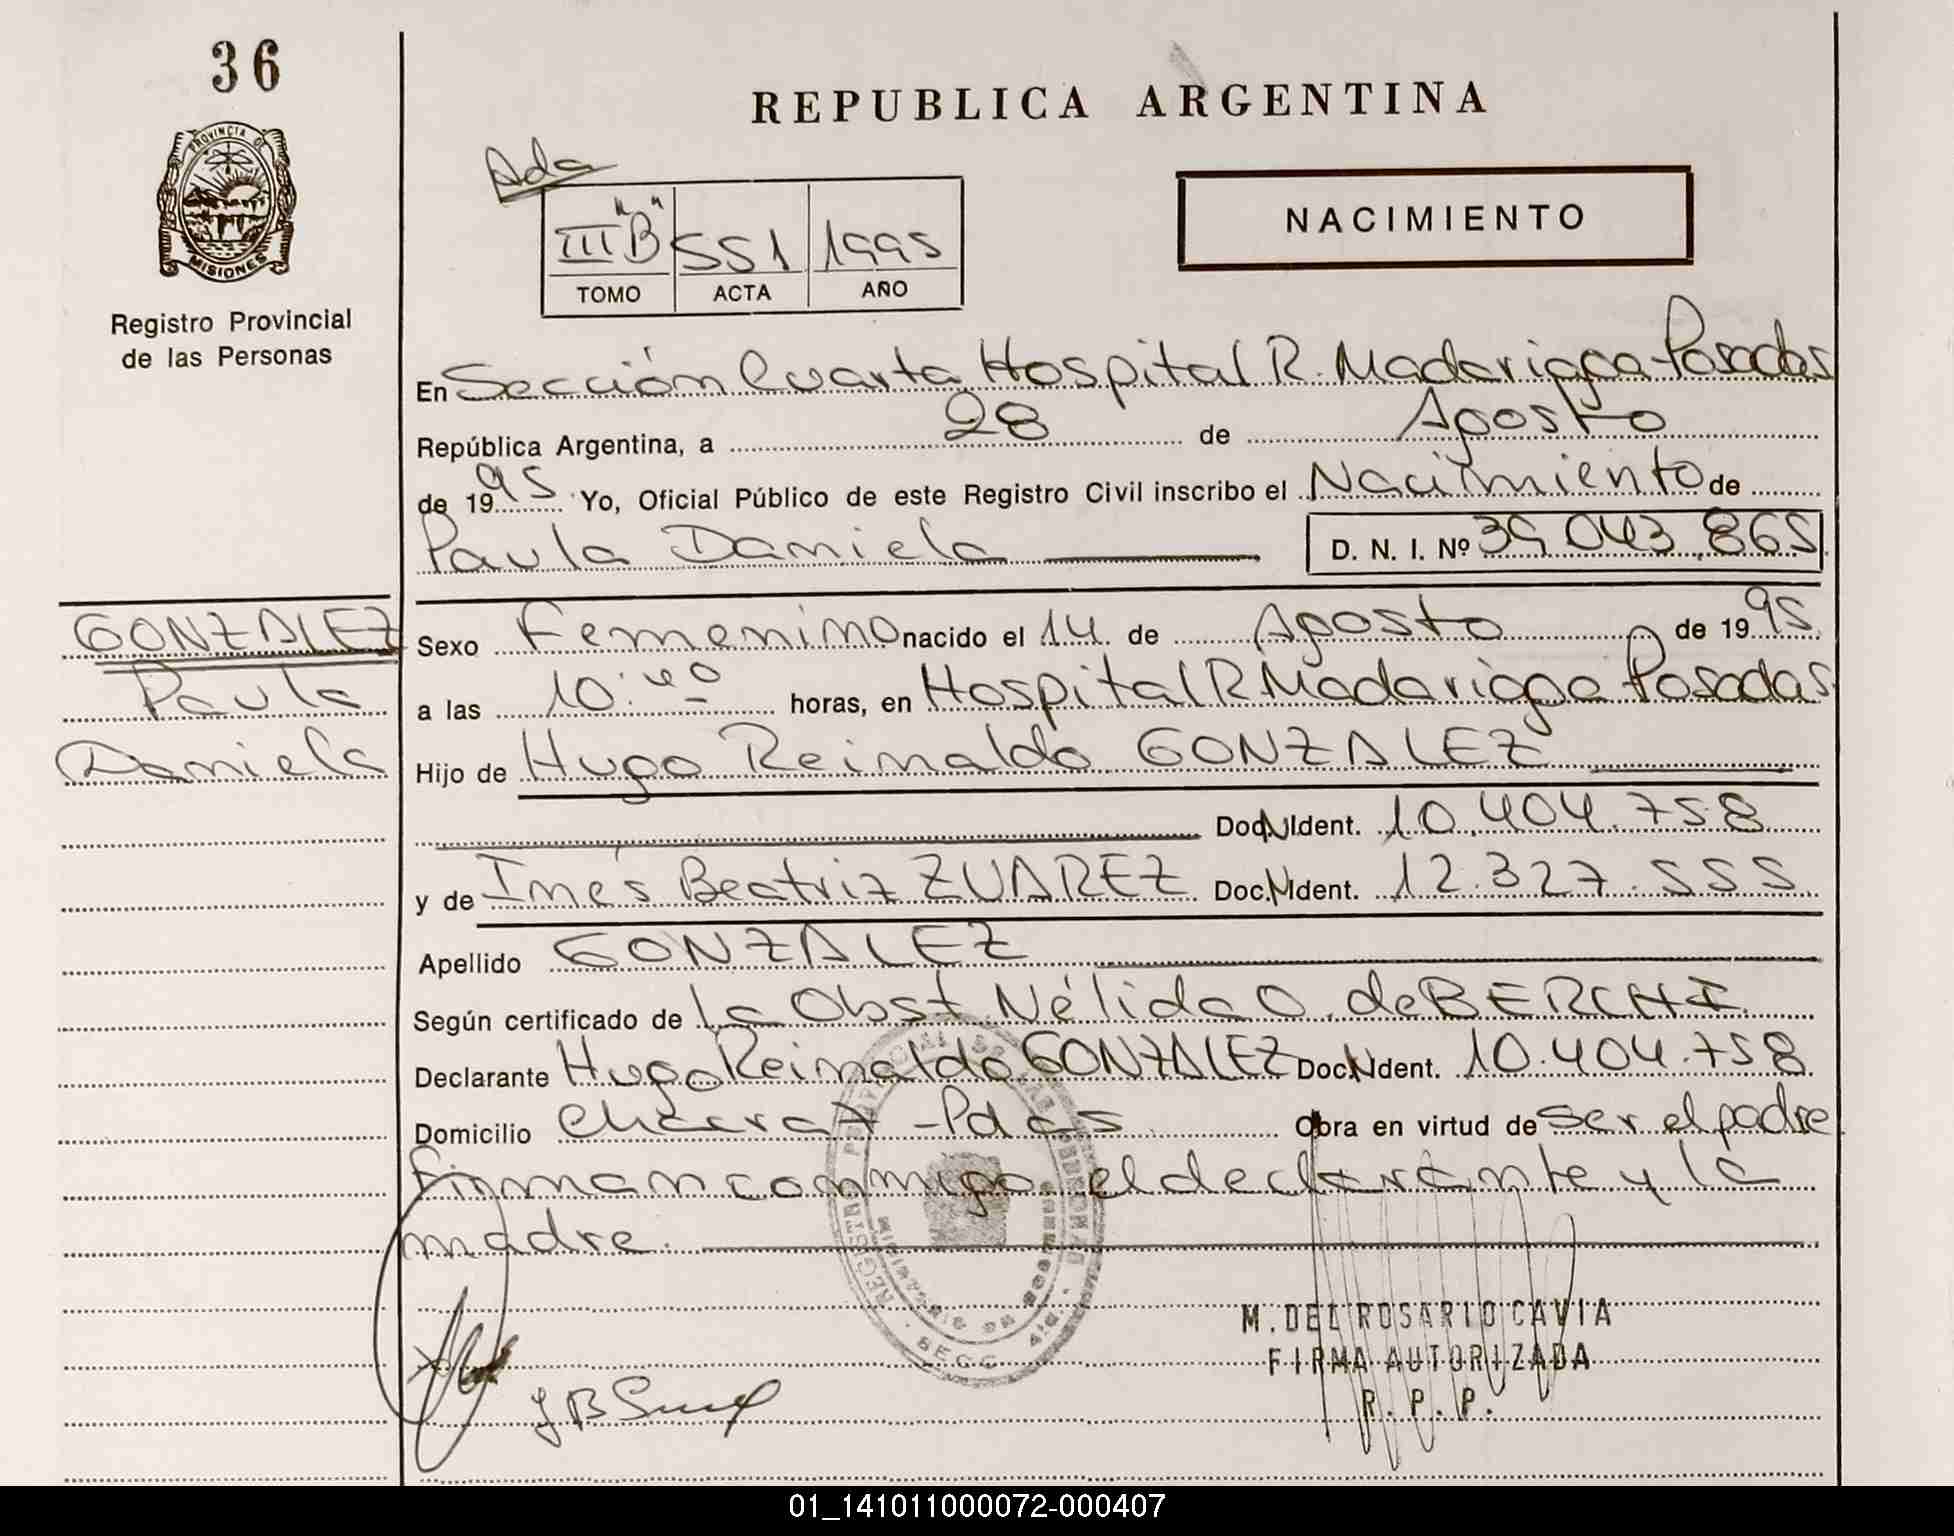 36
PROVINCIA DE
MISIONES
Registro Provincial
de las Personas
REPUBLICA ARGENTINA
Ada
III "B" 551 1995
TOMO ACTA AÑO
NACIMIENTO
En Sección Cuarta Hospital R. Madariaga Posadas
República Argentina, a 28 de Agosto
de 1995 Yo, Oficial Público de este Registro Civil inscribo el Nacimiento de
Paula Daniela D. N. I. Nº 39 043 865
GONZALEZ
Paula
Daniela
Sexo Femenino nacido el 14 de Agosto de 1995
a las 10:40 horas, en Hospital R Madariaga Posadas
Hijo de Hugo Reinaldo GONZALEZ
Doc. N Ident. 10.404.758
y de Inés Beatriz ZUAREZ Doc. N Ident. 12.327.555
Apellido GONZALEZ
Según certificado de la Obst Nélida O. de BERCHI
Declarante Hugo Reinaldo GONZALEZ Doc. N Ident. 10.404.758
Domicilio Chacra 7 - Pdas Obra en virtud de ser el padre
Firman conmigo el declarante y la
madre.
M. DEL ROSARIO CAVIA
FIRMA AUTORIZADA
R. P. P.
01_141011000072-000407